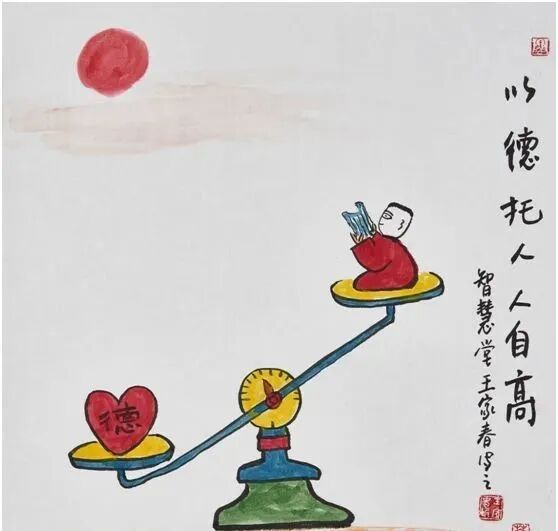 以德托人人自高
智慧堂王家春写之
德